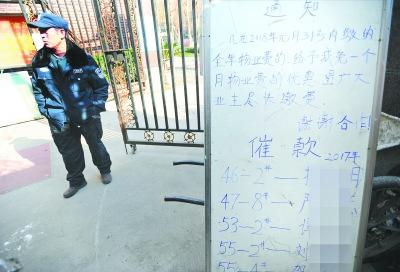 通知
凡在2018年元月31号内缴纳
全年物业费的，给予减免一个
月物业费的优惠，望广大
业主尽快缴费。
谢谢合
催款 2017年
46-2#—
47-8#—
53-2#—
55-2#—刘
55-4#—